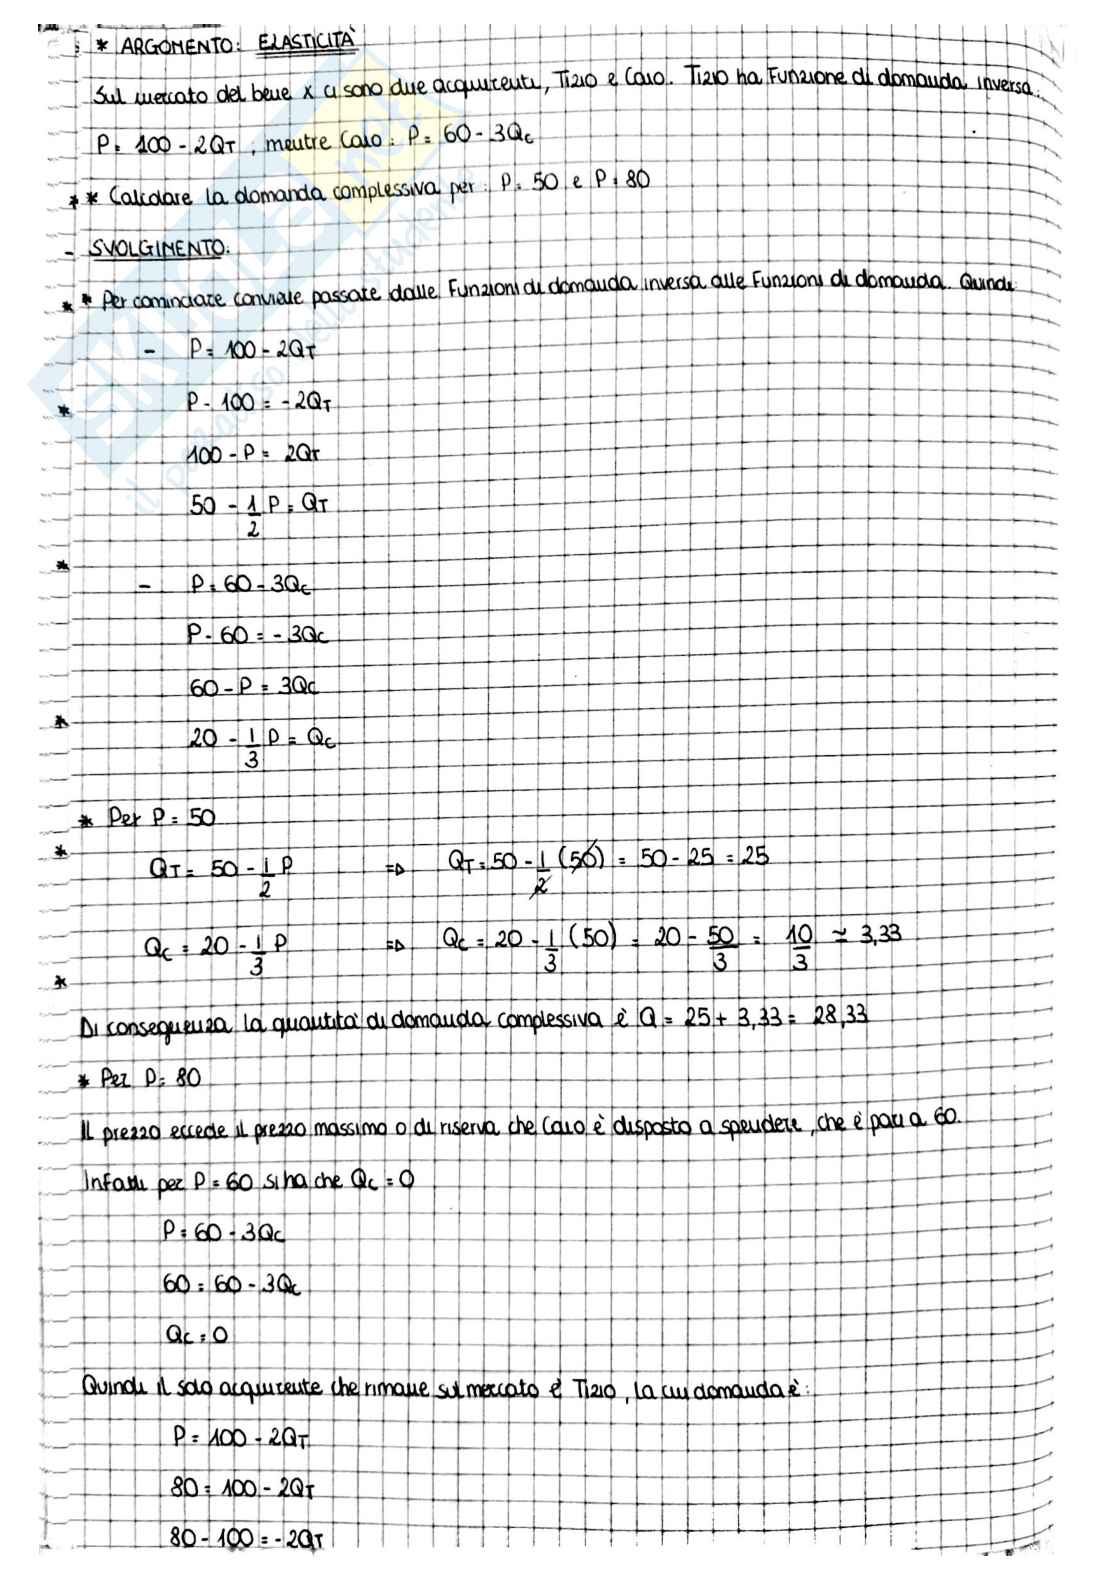 * ARGOMENTO: ELASTICITÀ
Sul mercato del bene x ci sono due acquirenti, Tizio e Caio. Tizio ha Funzione di domanda inversa:
P = 100 - 2QT, mentre Caio: P = 60 - 3Qc
* * Calcolare la domanda complessiva per: P = 50 e P = 80
- SVOLGIMENTO:
* * Per cominciare conviene passare dalle Funzioni di domanda inversa alle Funzioni di domanda. Quindi
- P = 100 - 2QT
* P - 100 = - 2QT
100 - P = 2QT
50 - 1/2 P = QT
*
- P = 60 - 3Qc
P - 60 = - 3Qc
60 - P = 3Qc
*
20 - 1/3 P = Qc
* Per P = 50
*
QT = 50 - 1/2 P => QT = 50 - 1/2 (50) = 50 - 25 = 25
Qc = 20 - 1/3 P => Qc = 20 - 1/3 (50) = 20 - 50/3 = 10/3 ≃ 3,33
*
Di conseguenza la quantità di domanda complessiva è Q = 25 + 3,33 = 28,33
* Per P = 80
Il prezzo eccede il prezzo massimo o di riserva che Caio è disposto a spendere, che è pari a 60.
Infatti per P = 60 si ha che Qc = 0
P = 60 - 3Qc
60 = 60 - 3Qc
Qc = 0
Quindi il solo acquirente che rimane sul mercato è Tizio, la cui domanda è:
P = 100 - 2QT
80 = 100 - 2QT
80 - 100 = - 2QT